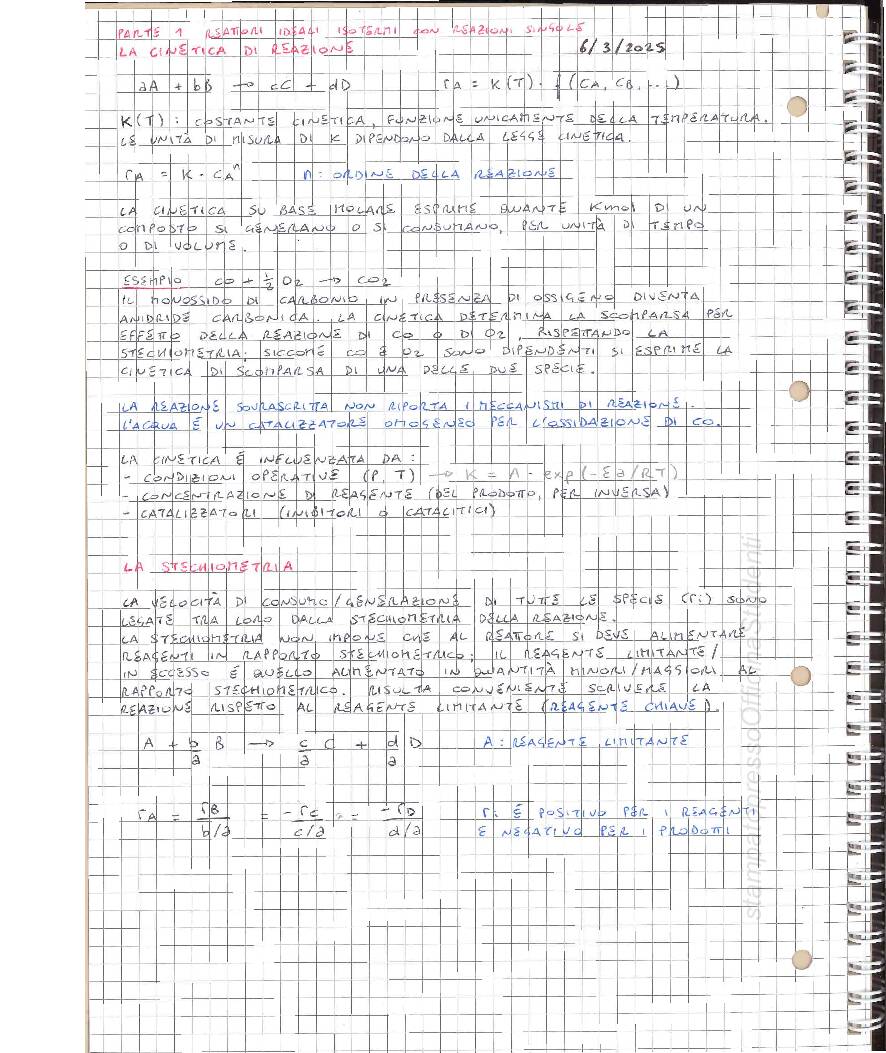 PARTE 1 REATTORI IDEALI ISOTERMI CON REAZIONI SINGOLE
LA CINETICA DI REAZIONE 6/3/2025
aA + bB → cC + dD rA = K(T) · f(CA, CB, ...)
K(T) : COSTANTE CINETICA, FUNZIONE UNICAMENTE DELLA TEMPERATURA.
LE UNITÀ DI MISURA DI K DIPENDONO DALLA LEGGE CINETICA.
rA = K · CAⁿ n : ORDINE DELLA REAZIONE
LA CINETICA SU BASE MOLARE ESPRIME QUANTE Kmol DI UN
COMPOSTO SI GENERANO O SI CONSUMANO, PER UNITÀ DI TEMPO
O DI VOLUME.
ESEMPIO CO + 1/2 O2 → CO2
IL MONOSSIDO DI CARBONIO IN PRESENZA DI OSSIGENO DIVENTA
ANIDRIDE CARBONICA. LA CINETICA DETERMINA LA SCOMPARSA PER
EFFETTO DELLA REAZIONE DI CO O DI O2, RISPETTANDO LA
STECHIOMETRIA; SICCOME CO E O2 SONO DIPENDENTI SI ESPRIME LA
CINETICA DI SCOMPARSA DI UNA DELLE DUE SPECIE.
LA REAZIONE SOVRASCRITTA NON RIPORTA I MECCANISMI DI REAZIONE.
L'ACQUA È UN CATALIZZATORE OMOGENEO PER L'OSSIDAZIONE DI CO.
LA CINETICA È INFLUENZATA DA :
- CONDIZIONI OPERATIVE (P, T) → K = A · exp(-Ea/RT)
- CONCENTRAZIONE DI REAGENTE (DEL PRODOTTO, PER INVERSA)
- CATALIZZATORI (INIBITORI O CATALITICI)
LA STECHIOMETRIA
LA VELOCITÀ DI CONSUMO/GENERAZIONE DI TUTTE LE SPECIE (ri) SONO
LEGATE TRA LORO DALLA STECHIOMETRIA DELLA REAZIONE.
LA STECHIOMETRIA NON IMPONE CHE AL REATTORE SI DEVE ALIMENTARE
REAGENTI IN RAPPORTO STECHIOMETRICO; IL REAGENTE LIMITANTE/
IN ECCESSO È QUELLO ALIMENTATO IN QUANTITÀ MINORI/MAGGIORI AL
RAPPORTO STECHIOMETRICO. RISULTA CONVENIENTE SCRIVERE LA
REAZIONE RISPETTO AL REAGENTE LIMITANTE (REAGENTE CHIAVE).
A + b/a B → c/a C + d/a D A : REAGENTE LIMITANTE
rA = rB/(b/a) = -rC/(c/a) = -rD/(d/a) ri È POSITIVO PER I REAGENTI
E NEGATIVO PER I PRODOTTI
stampatopressoOfficinaStudenti